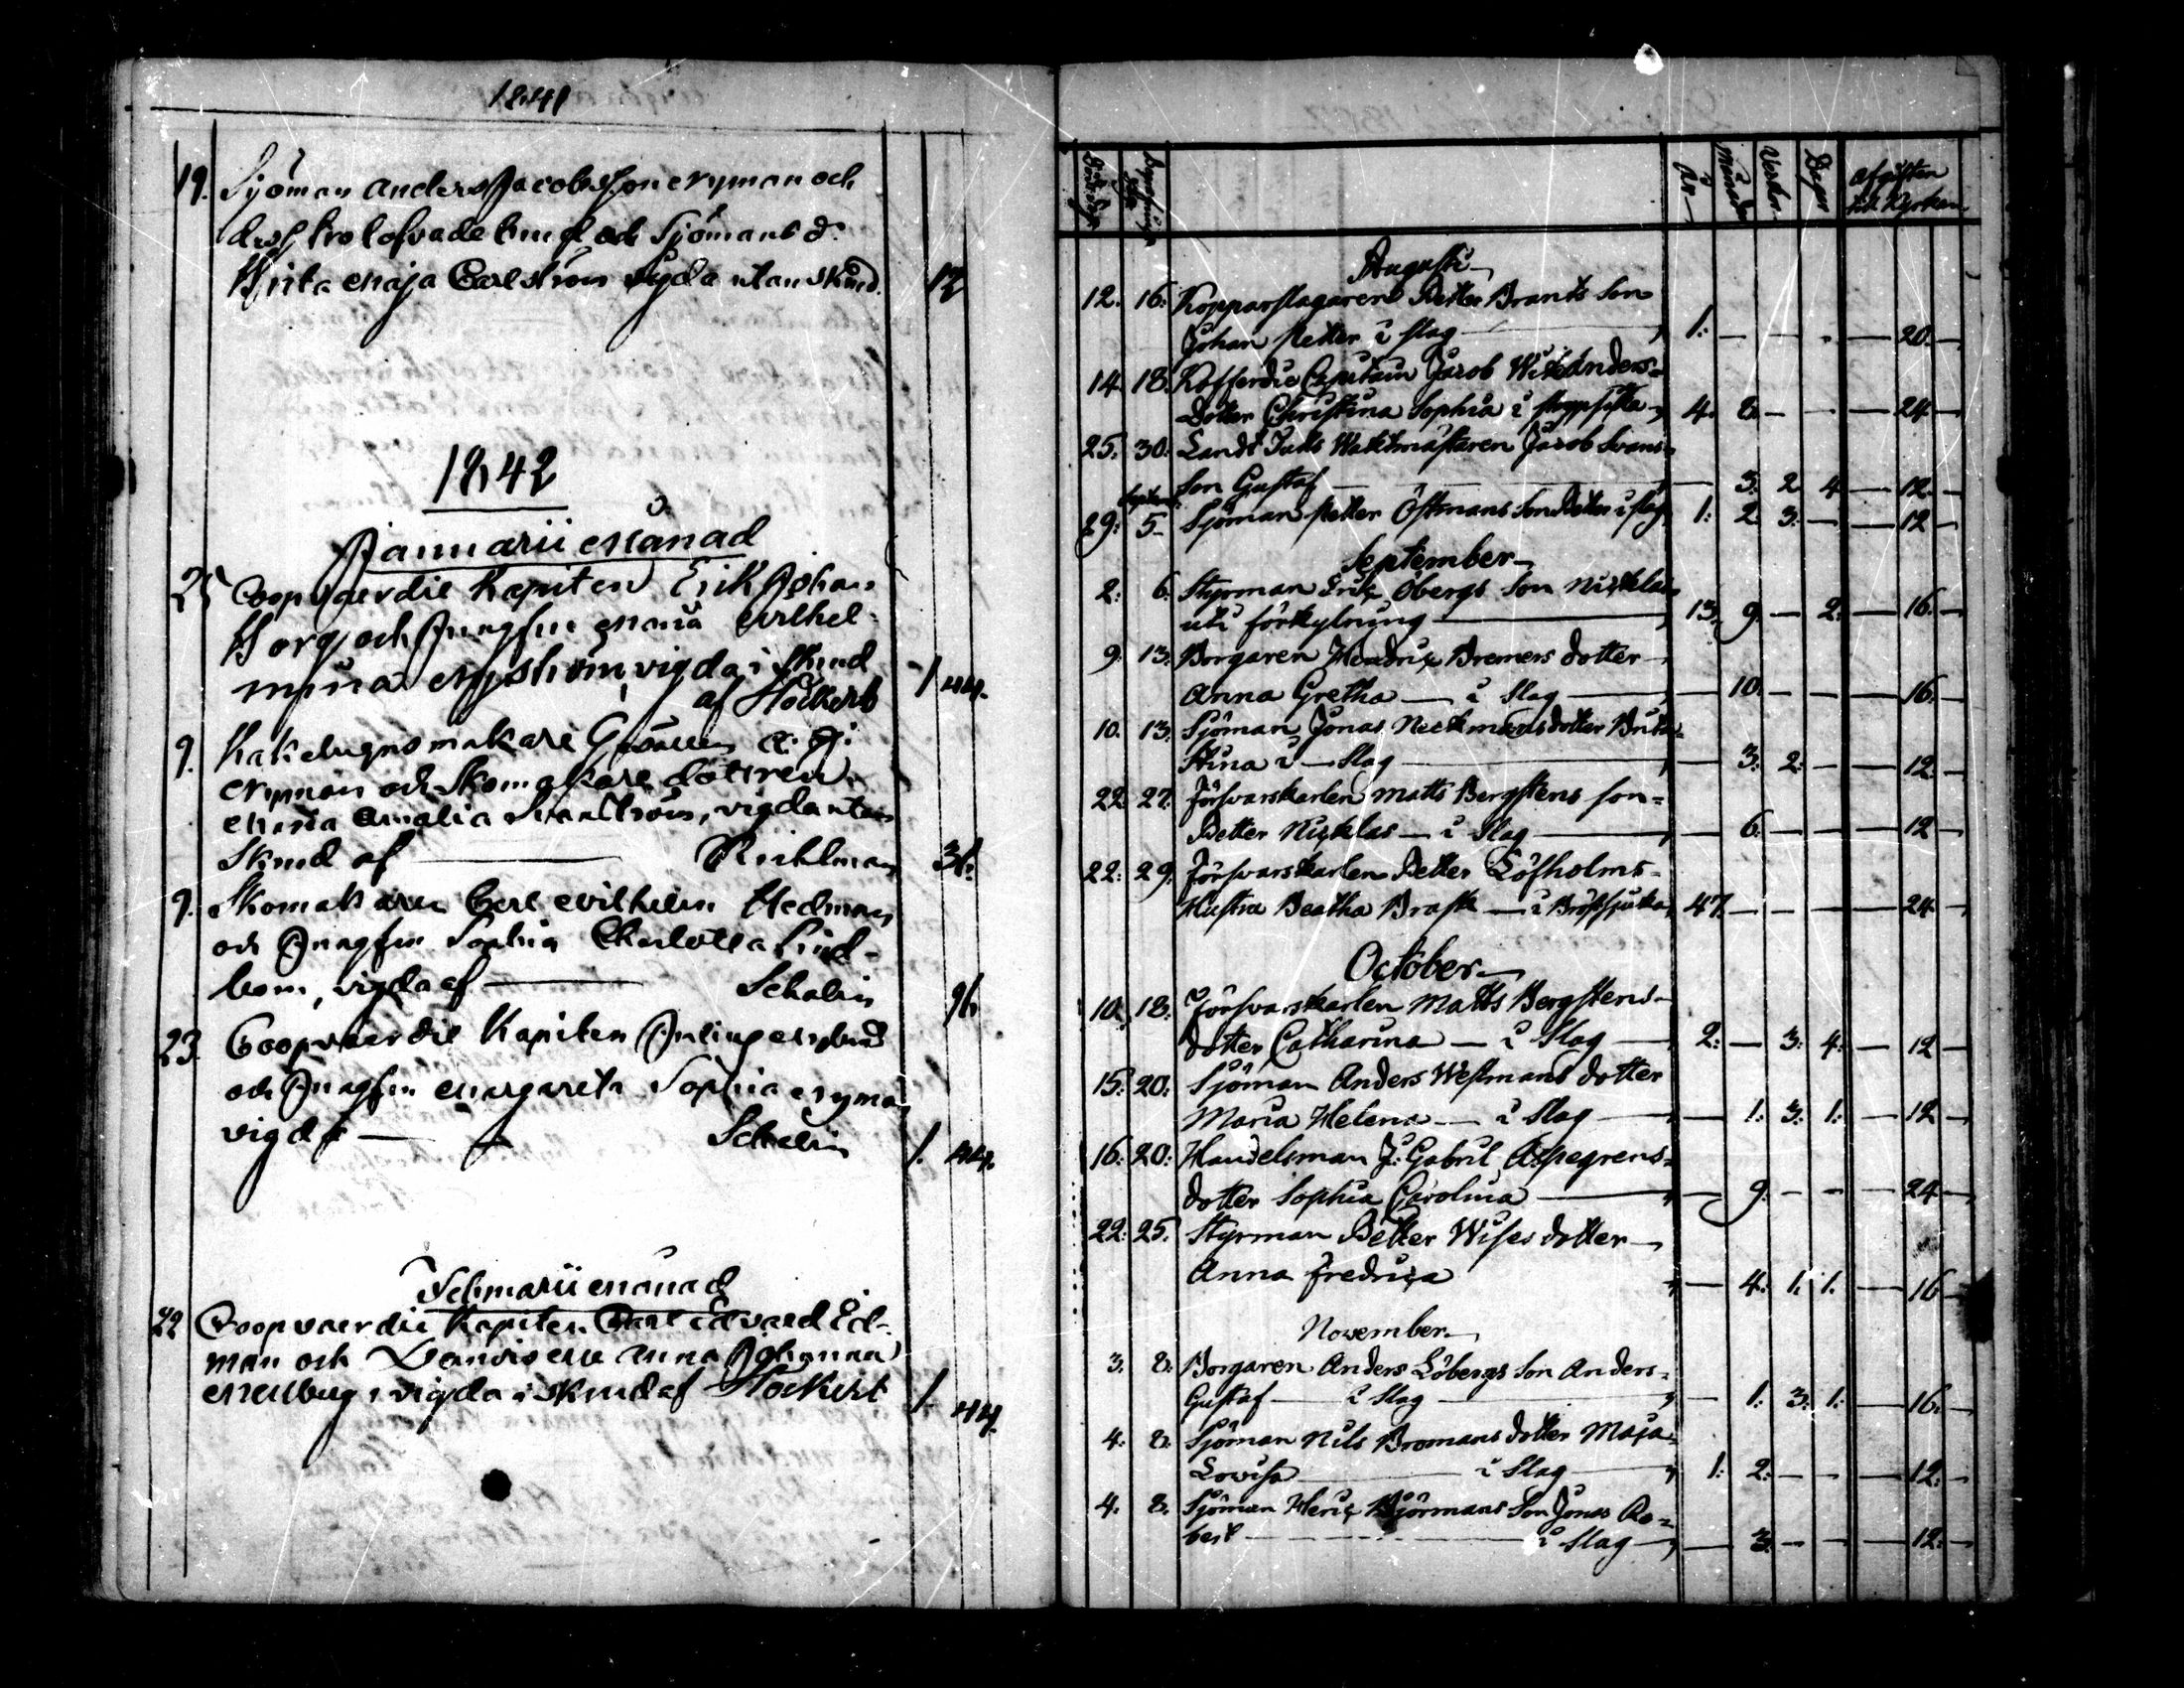 1841
19. Sjöman Anders Jacobsson Nyman och
dess trolofvade hustru och Sjömans d.
Brita Maja Carlström vigda utan Skrud. 12
1842
Januarii Månad
25 Coopvaerdie Kapiten Erik Johan
Borg och Jungfru Maria Wilhel-
mina Nyström, vigda i Skrud
af Höckert 1 44.
9. Kakelugnsmakare
Nyman och Skomakare dottren
Maria Amalia vigda utan
Skrud af
9. Skomakaren Carl Wilhelm Hedman
och Jungfru Sophia Charlotta Lind-
bom, vigda af — Schalin 96
23. Coopvaerdie Kapiten
och Jungfru Margareta Sophia Nyman
vigda — Schalin 1. 44.
Februarii Månad
22 Coopvaerdie Kapiten Carl Edvard Ed-
man och Anna Johanna
vigda i Skrud af Höckert 1. 44.
År Månader Veckor Dagar Afgiften till Kyrkan
Augusti
12. 16. Kopparslagaren Petter Brants Son
Johan Petter i Slag — 1: — — — — 20. —
14. 18. Kofferdie Capitain Jacob Wikanders=
Dotter Christina Sophia i — 4. 8. — — — 24 —
25. 30. Landt Tulls Waktmästaren Jacob Svans=
Son Gustaf — 3. 2. 4 — 12. —
Septemb.
29: 5. Sjöman Petter Östmans Son Petter i Slag 1: 2. 3: — — 12 —
September
2: 6. Styrman Eric Öbergs Son Nicklas
uti förkylning — 13. 9. — 2: — 16. —
9. 13. Borgaren Hendric Bremers dotter
Anna Gretha — i Slag — — 10. — — — 16. —
10. 13. Sjöman Jonas Neckmans dotter Brita
Stina i — Slag — — 3: 2: — — 12. —
22. 27. Försvarskarlen Matts Bergstens son=
Petter Nicklas — i Slag — — 6. — — — 12 —
22: 29: Försvarskarlen Petter Löfholms=
Hustru Beatha Brask — i Bröstsjuka, 47. — — — — 24 —
October
10. 18. Försvarskarlen Matts Bergstens
dotter Catharina — i Slag — 2: — 3: 4: — 12 —
15: 20: Sjöman Anders Westmans dotter
Maria Helena — i Slag — — 1: 3: 1: — 12 —
16: 20: Handelsman J: Gabril Aspegrens=
dotter Sophia Carolina — — 9. — — — 24 —
22: 25. Styrman Petter Wises dotter
Anna Fredrica — 4. 1. 1. — 16 —
November
3. 8: Borgaren Anders Löbergs Son Anders=
Gustaf — i Slag — — 1: 3: 1: — 16: —
4. 8: Sjöman Nils Bromans dotter Maja
Lovisa — i Slag — 1: 2: — — — 12: —
4. 8. Sjöman Heric Björmans Son Jonas Ro=
bert — i Slag — — 3. — — — 12: —